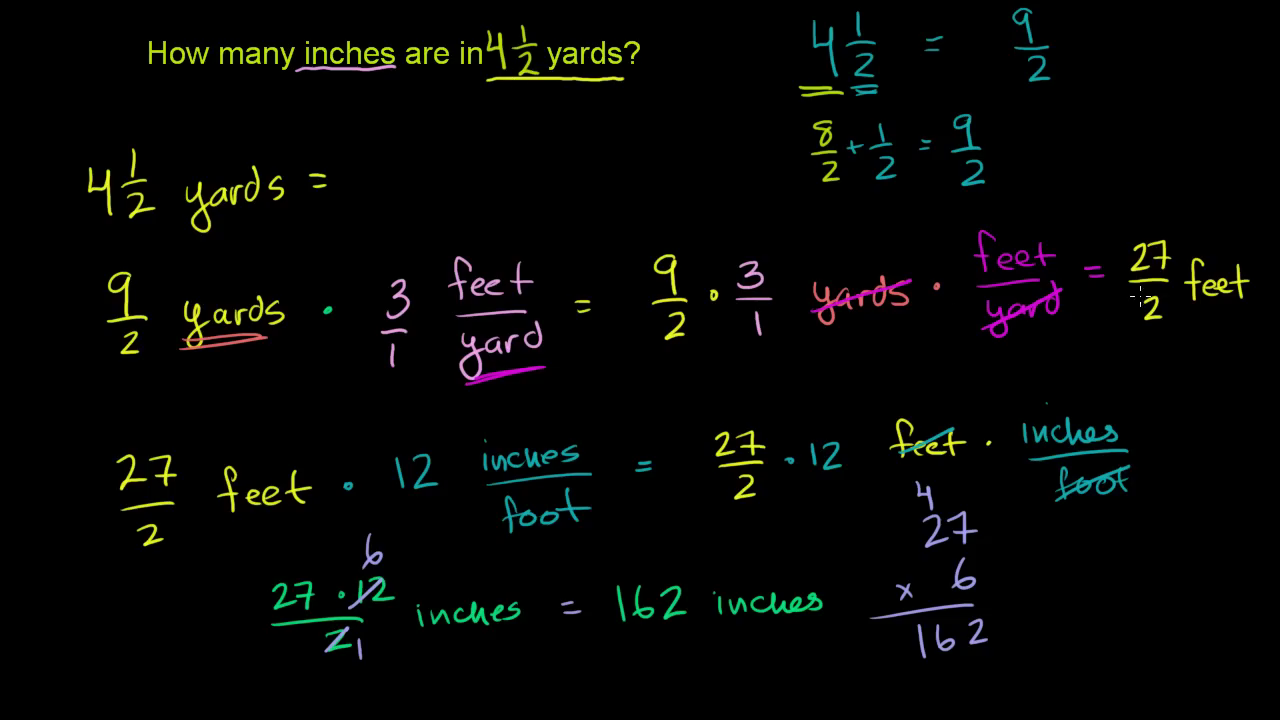 How many inches are in 4 1/2 yards?
4 1/2 = 9/2
8/2 + 1/2 = 9/2
4 1/2 yards =
9/2 yards · 3/1 feet/yard = 9/2 · 3/1 yards · feet/yard = 27/2 feet
27/2 feet · 12 inches/foot = 27/2 · 12 feet · inches/foot
6
27 · 12 / 2 1 inches = 162 inches
4
27
x 6
162